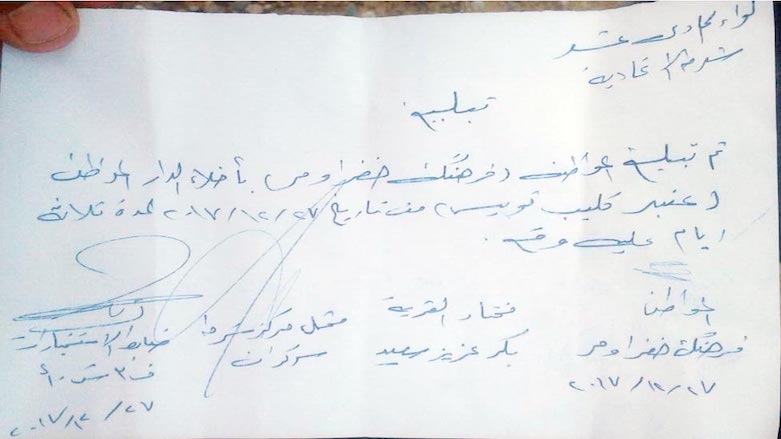 لواء الحادي عشر
شرطة الاتحادية
تبليغ
تم تبليغ المواطن (فرهنك خضر اومر) بأخلاء الدار المواطن
(عنبر كليب قويس) من تاريخ ٢٠١٧/١٢/٢٧ لمدة ثلاثة
ايام عليه وقع .
المواطن
فرهنك خضر اومر
٢٠١٧/١٢/٢٧
مختار القرية
بكر عزيز سعيد
ممثل مركز شرطة
سركران
ضابط الاستخبارات
ف٣ ش
٢٠١٧/١٢/٢٧